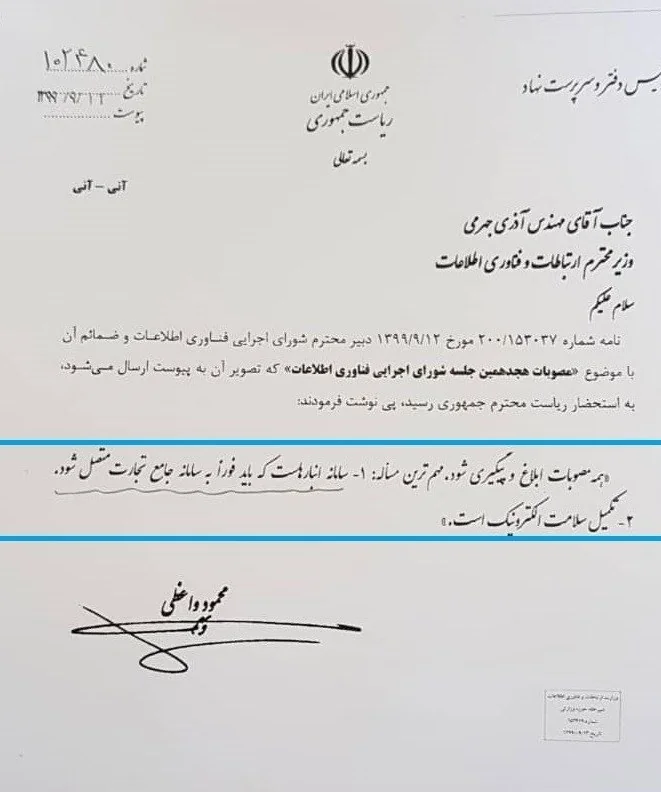 شماره ۱۰۲۴۸۰
تاریخ ۱۳۹۹/۹/۱۲
پیوست
جمهوری اسلامی ایران
ریاست جمهوری
بسمه تعالی
یس دفتر و سرپرست نهاد
آنی - آنی
جناب آقای مهندس آذری جهرمی
وزیر محترم ارتباطات و فناوری اطلاعات
سلام علیکم
نامه شماره ۲۰۰/۱۵۳۰۳۷ مورخ ۱۳۹۹/۹/۱۲ دبیر محترم شورای اجرایی فناوری اطلاعات و ضمائم آن
با موضوع «مصوبات هجدهمین جلسه شورای اجرایی فناوری اطلاعات» که تصویر آن به پیوست ارسال می‌شود،
به استحضار ریاست محترم جمهوری رسید، پی نوشت فرمودند:
«همه مصوبات ابلاغ و پیگیری شود. مهم ترین مسأله: ۱- سامانه انبارهاست که باید فوراً به سامانه جامع تجارت متصل شود.
۲- تکمیل سلامت الکترونیک است.»
محمود واعظی
وزارت ارتباطات و فناوری اطلاعات
دبیرخانه حوزه وزارتی